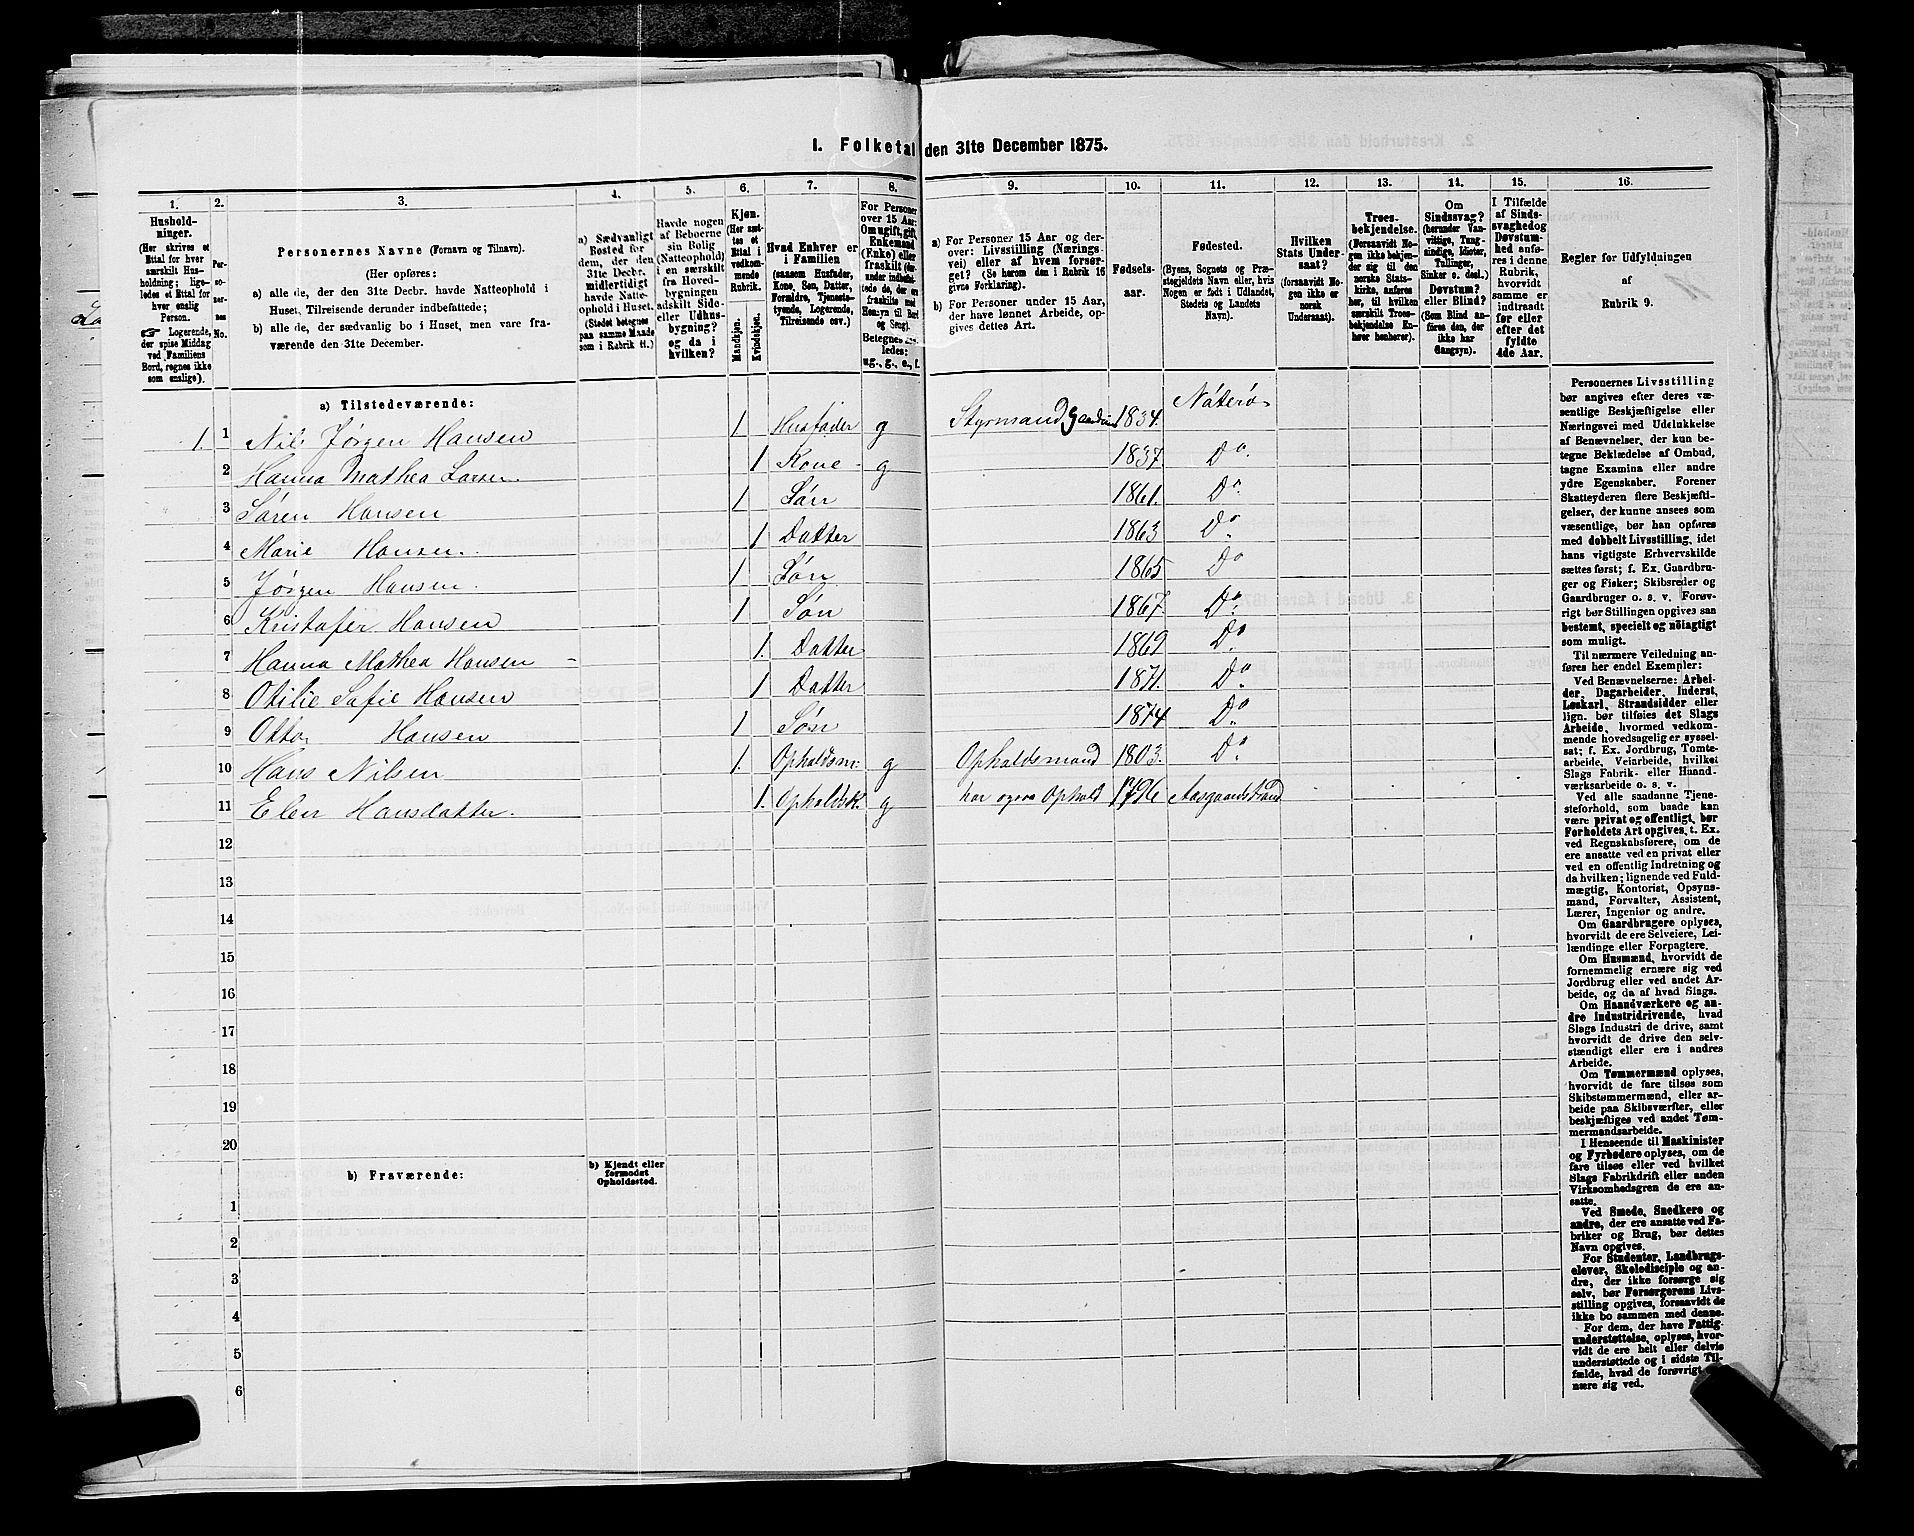 I. Folketal den 31te December 1875.
1. 2. 3. 4. 5. 6. 7. 8. 9. 10. 11. 12. 13. 14. 15. 16.
Hushold-
ninger.
(Her skrives et
Ettal for hver
særskilt Hus-
holdning; lige-
ledes et Ettal for
hver enslig
Person.
☞ Logerende,
der spise Middag
ved Familiens
Bord, regnes ikke
som enslige).
Per-
so-
ner-
nes
No.
Personernes Navne (Fornavn og Tilnavn).
(Her opføres:
a) alle de, der den 31te Decbr. havde Natteophold i
Huset, Tilreisende derunder indbefattede;
b) alle de, der sædvanlig bo i Huset, men vare fra-
værende den 31te December.
a) Sædvanligt
Bosted for
dem, der den
31te Decbr.
midlertidigt
havde Natte-
ophold i Huset.
(Stedet betegnes
paa samme Maade
som i Rubrik 11.)
Havde nogen
af Beboerne
sin Bolig
(Natteophold)
i en særskilt
fra Hoved-
bygningen
adskilt Side-
eller Udhus-
bygning?
og da i
hvilken?
Kjøn.
(Her sæt-
tes et
Ettal i
vedkom-
mende
Rubrik.
Mandkjøn.
Kvindekjøn.
Hvad Enhver er
i Familien
(saasom Husfader,
Kone, Søn, Datter,
Forældre, Tjeneste-
tyende, Logerende,
Tilreisende osv.)
For Personer
over 15 Aar:
Om ugift, gift,
Enkemand
(Enke) eller
fraskilt
Betegnes
ledes:
ug., g., e., f.
a) For Personer 15 Aar og der-
over: Livsstilling (Nærings-
vei) eller af hvem forsør-
get? (Se herom den i Rubrik 16
givne Forklaring).
b) For Personer under 15 Aar,
der have lønnet Arbeide, op-
gives dettes Art.
Fødsels-
aar.
Fødested.
(Byens, Sognets og Præ-
stegjeldets Navn eller, hvis
Nogen er født i Udlandet,
Stedets og Landets
Navn).
Hvilken
Stats Under-
saat?
(forsaavidt No-
gen ikke er
norsk
Undersaat).
Troes-
bekjendelse.
(Forsaavidt No-
gen ikke bekjen-
der sig til den
norske Stats-
kirke, anføres
her, til hvilken
særskilt Troes-
bekjendelse En-
hver henhører).
Om
Sindssvag?
(herunder Van-
vittige, Tung-
sindige, Idioter,
Tullinger,
Sinker o. desl.)
Døvstum?
eller Blind?
(Som Blind an-
føres den, der
ikke har
Gangsyn).
I Tilfælde
af Sinds-
svaghed og
Døvstum-
hed anfø-
res i denne
Rubrik,
hvorvidt
samme er
indtraadt
før eller
efter det
fyldte
4de Aar.
Regler for Udfyldningen
af
Rubrik 9.
a) Tilstedeværende:
1. 1 Nils Jørgen Hansen 1 Husfader g Styrmand 1834. Nøterø
2 Hanna Mathea Larsen 1 Kone g 1837 Do.
3 Søren Hansen 1 Søn 1861. Do.
4 Marie Hansen. 1 Datter 1863 Do.
5 Jørgen Hansen. 1 Søn 1865 Do
6 Kristofer Hansen 1 Søn 1867. Do.
7 Hanna Mathea Hansen 1. Datter 1869 Do.
8 Otilie Sofie Hansen 1 Datter 1871. Do.
9 Otto Hansen 1 Søn 1874 Do.
10 Hans Nilsen 1. Opholdsm. g Opholdsmand 1803. Do.
11 Elen Hansdatter. 1. Opholdsk. g har ogsaa Ophold 1796 Aasgaardstrand
12
13
14
15
16
17
18
19
20
b) Fraværende:
b) Kjendt eller
formodet
Opholdssted.
1
2
3
4
5
6
Personernes Livsstilling
bør angives efter deres væ-
sentlige Beskjæftigelse eller
Næringsvei med Udelukkelse
af Benævnelser, der kun be-
tegne Beklædelse af Ombud,
tagne Examina eller andre
ydre Egenskaber. Forener
Skatteyderen flere Beskjæfti-
gelser, der kunne ansees som
væsentlige, bør han opføres
med dobbelt Livsstilling, idet
hans vigtigste Erhvervskilde
sættes først; f. Ex. Gaardbru-
ger og Fisker; Skibsreder og
Gaardbruger o. s. v. Forøv-
rigt bør Stillingen opgives saa
bestemt, specielt og nöiagtigt
som muligt.
Til nærmere Veiledning an-
føres her endel Exempler:
Ved Benævnelserne: Arbei-
der, Dagarbeider, Inderst,
Løskarl, Strandsidder eller
lign. bør tilføies det Slags
Arbeide, hvormed vedkom-
mende hovedsagelig er syssel-
sat; f. Ex. Jordbrug, Tomte-
arbeide, Veiarbeide, hvilket
Slags Fabrik- eller Haand-
værksarbeide o. s. v.
Ved alle saadanne Tjene-
steforhold, som baade kan
være privat og offentligt, bør
Forholdets Art opgives, t. Ex.
ved Regnskabsførere, om de
ere ansatte ved en privat eller
ved en offentlig Indretning og
da hvilken; lignende ved Fuld-
mægtig, Kontorist, Opsyns-
mand, Forvalter, Assistent,
Lærer, Ingeniør og andre.
Om Gaardbrugere oplyses,
hvorvidt de ere Selveiere, Lei-
lændinge eller Forpagtere.
Om Husmænd, hvorvidt de
fornemmelig ernære sig ved
Jordbrug eller ved andet Ar-
beide, og da af hvad Slags.
Om Haandværkere og an-
dre Industridrivende, hvad
Slags Industri de drive, samt
hvorvidt de drive den selv-
stændigt eller ere i andres
Arbeide.
Om Tømmermænd oplyses,
hvorvidt de fare tilsøs som
Skibstømmermænd, eller ar-
beide paa Skibsværfter, eller
beskjæftiges ved andet Tøm-
mermandsarbeide.
I Henseende til Maskinister
og Fyrbødere oplyses, om de
fare tilsøs eller ved hvilket
Slags Fabrikdrift eller anden
Virksomhedsgren de ere an-
satte.
Ved Smede, Snedkere og
andre, der ere ansatte ved Fa-
briker og Brug, bør dettes
Navn opgives.
For Studenter, Landbrugs-
elever, Skoledisciple og an-
dre, der ikke forsørge sig
selv, bør Forsørgerens Livs-
stilling opgives, forsaavidt de
ikke bo sammen med denne.
For dem, der have Fattig-
understøttelse, oplyses, hvor-
vidt de ere helt eller delvis
understøttede og i sidste Til-
fælde, hvad de forøvrigt er-
nære sig ved.